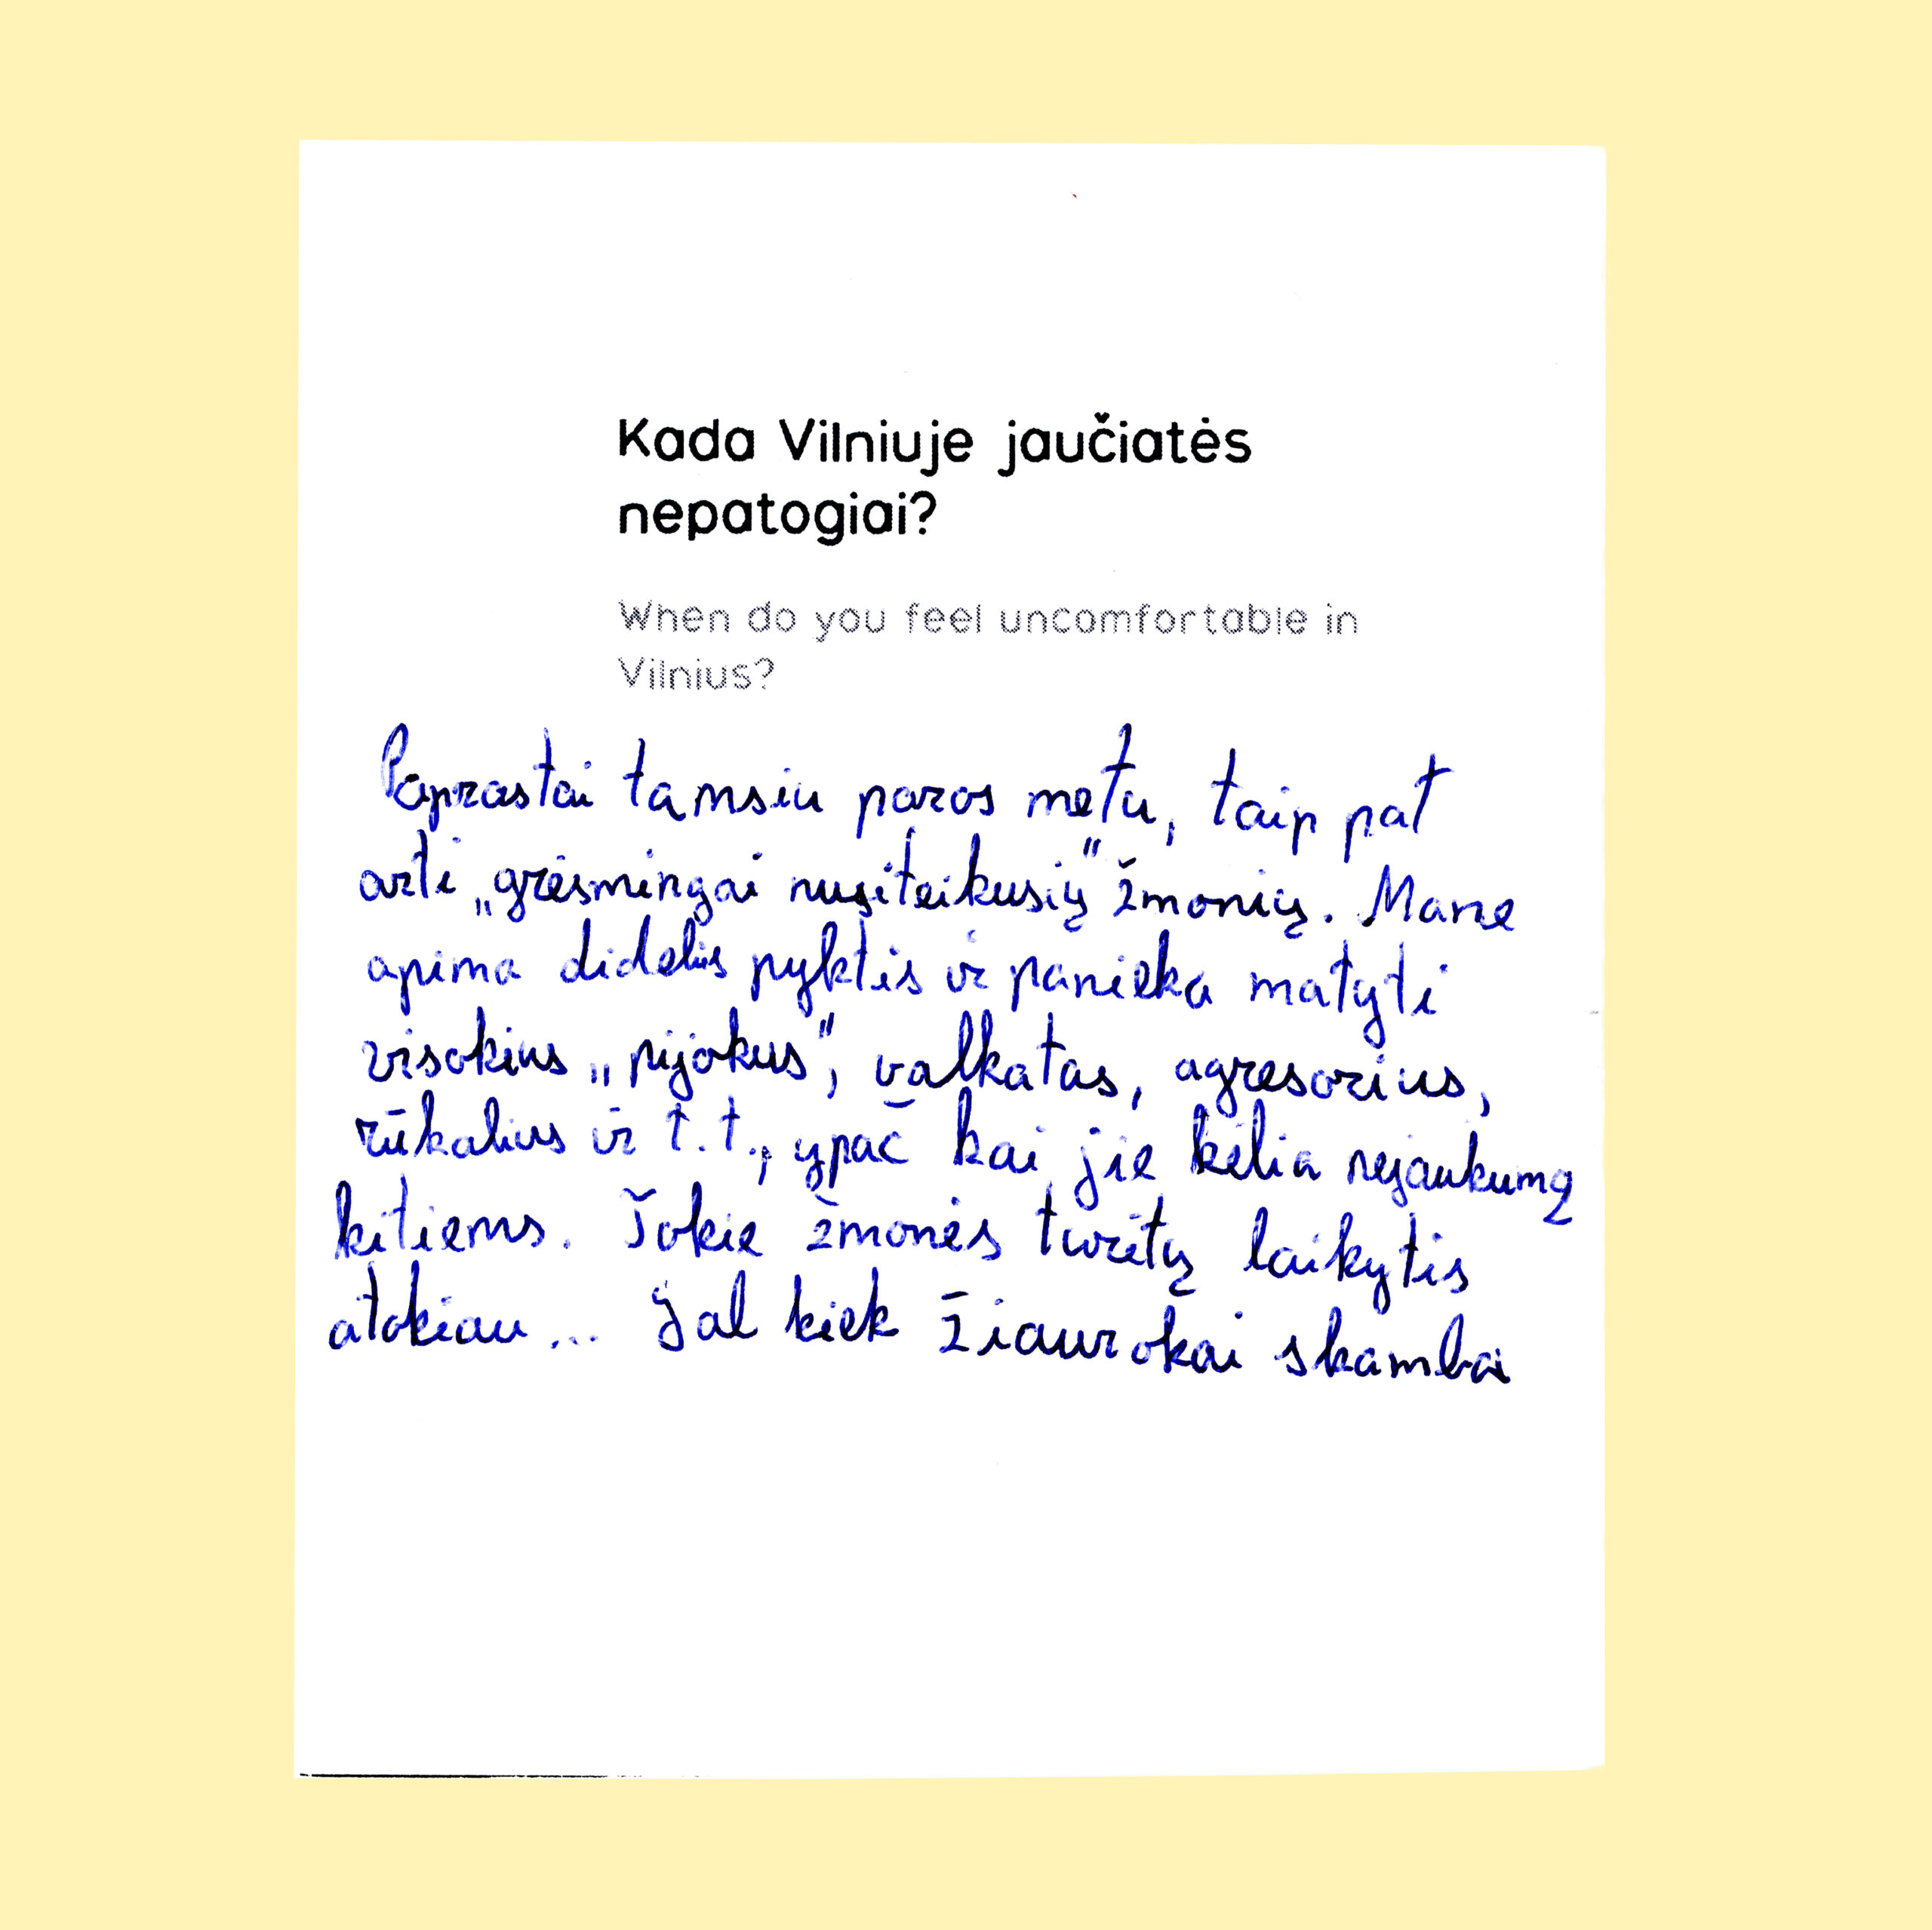 Kada Vilniuje jaučiatės
nepatogiai?
When do you feel uncomfortable in
Vilnius?
Paprastai tamsiu paros metu, taip pat
arti „grėsmingai nusiteikusių" žmonių. Mane
apima didelis pyktis ir panieka matyti
visokius „pijokus", valkatas, agresorius,
rūkalius ir t.t., ypač kai jie kelia nejaukumą
kitiems. Tokie žmonės turėtų laikytis
atokiau... Gal kiek žiaurokai skamba